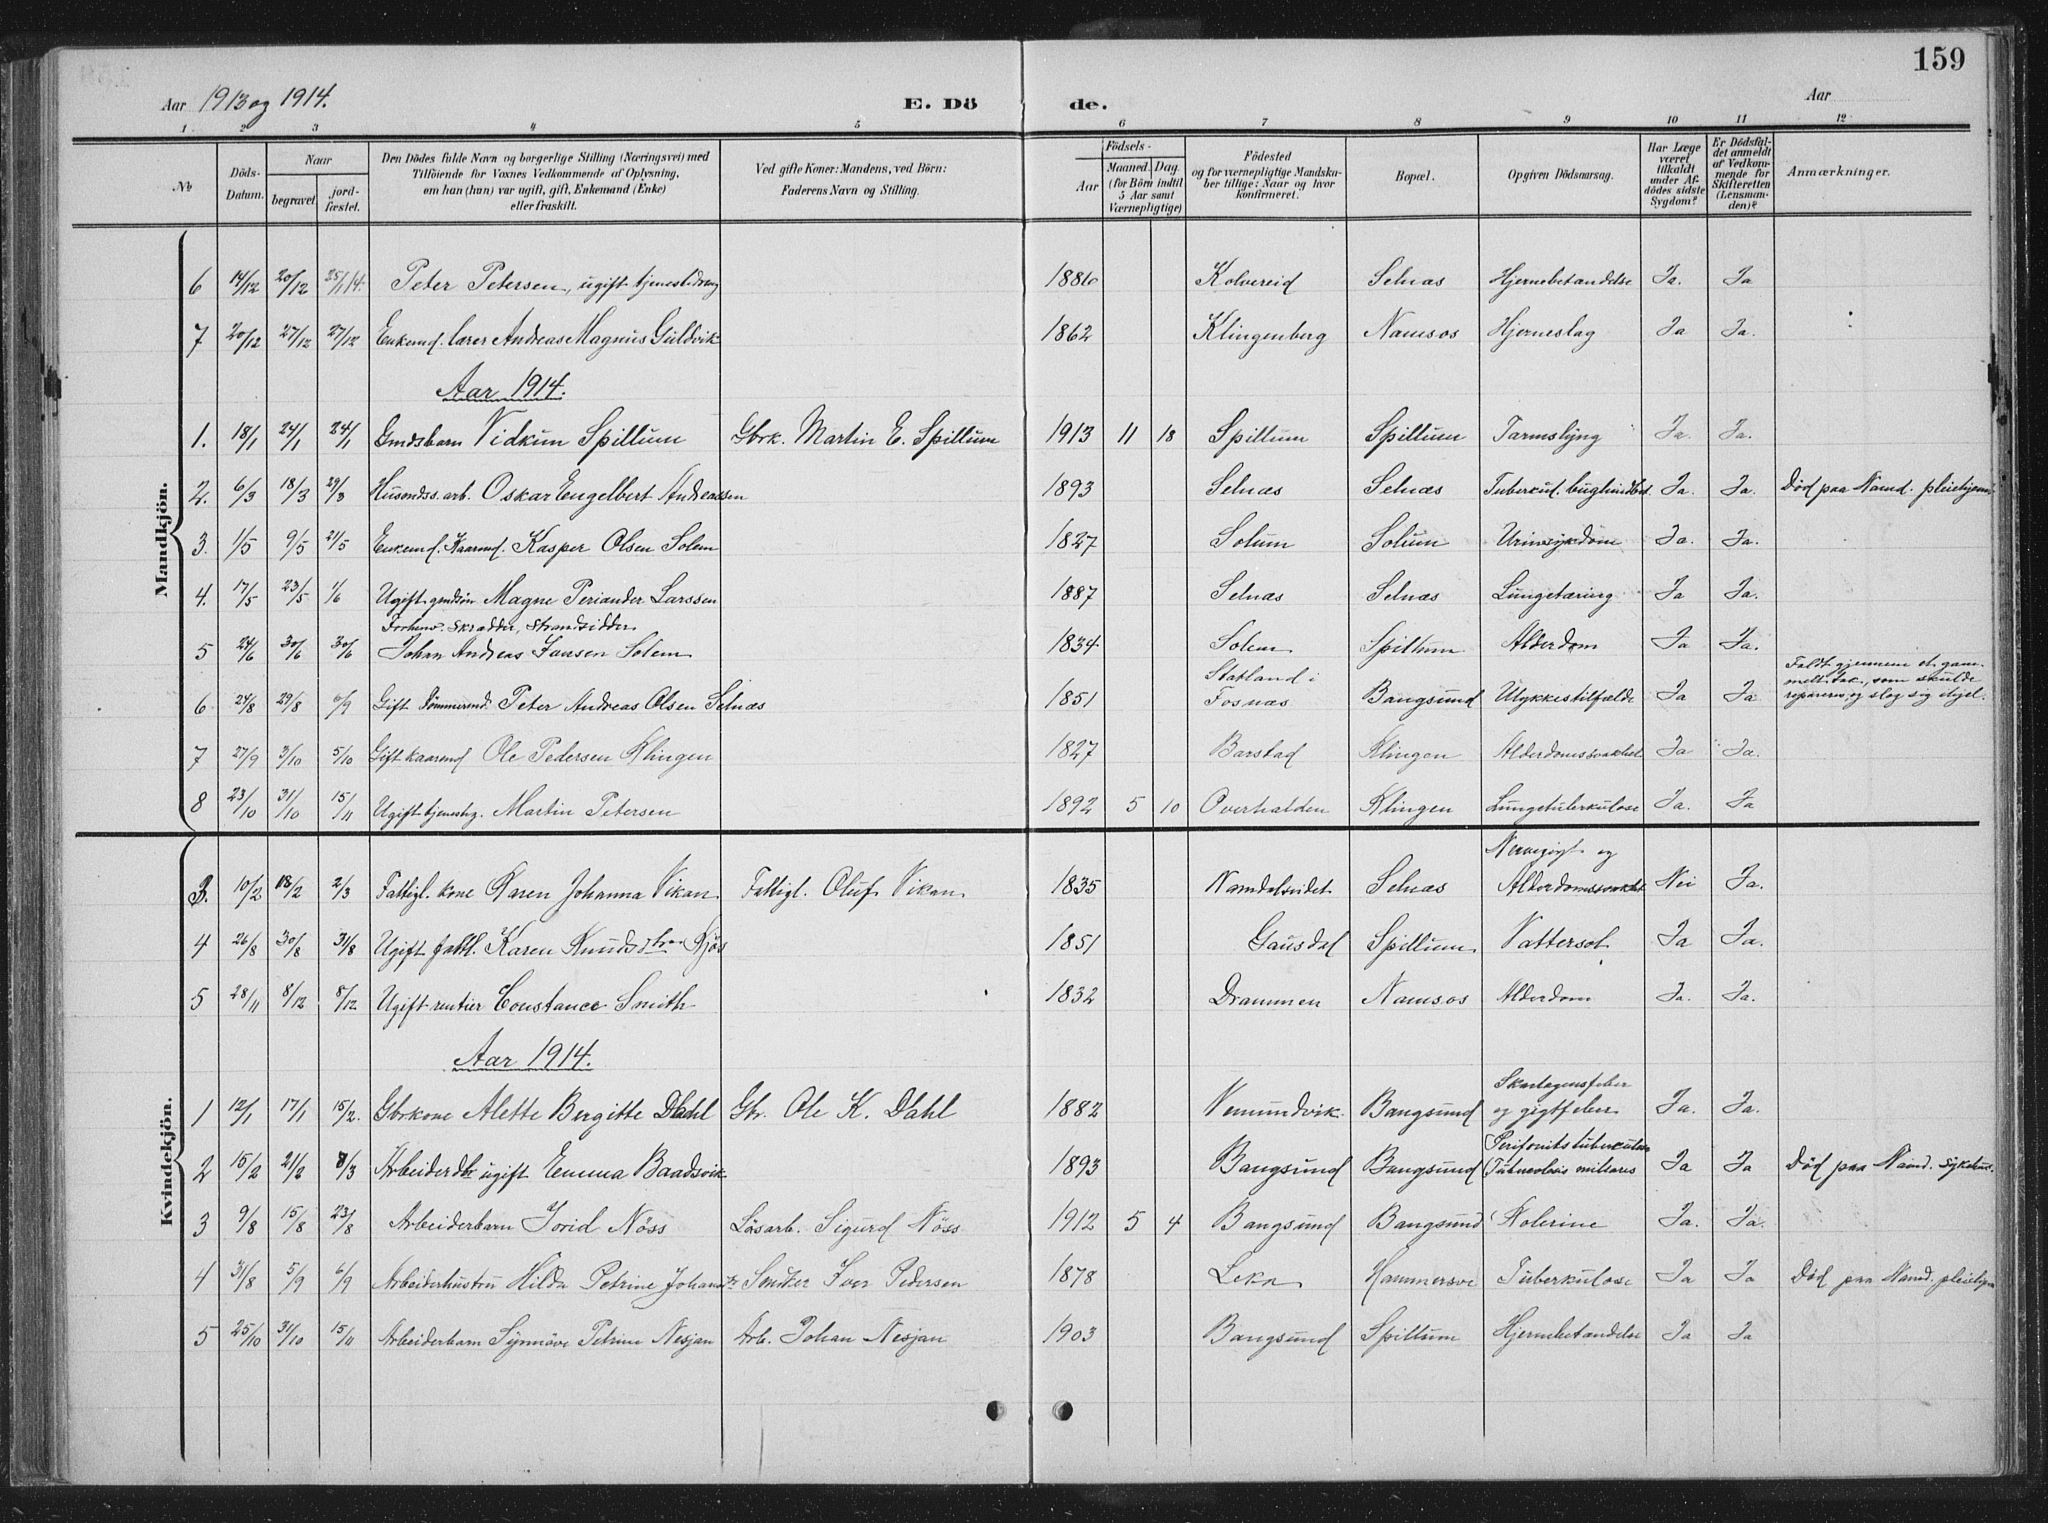 159
Aar 1913 og 1914.
E. Dö de.
Aar
1 2 3 4 5 6 7 8 9 10 11 12
No
Döds-Datum.
Naar
begravet.
jord-fæstet.
Den Dödes fulde Navn og borgerlige Stilling (Næringsvei) med
Tilföiende for Voxnes Vedkommende af Oplysning,
om han (hun) var ugift, gift, Enkemand (Enke)
eller fraskilt.
Ved gifte Koner: Mandens, ved Börn:
Faderens Navn og Stilling.
Födsels-
Aar
Maaned. Dag.
(for Börn indtil
5 Aar samt
Værnepligtige)
Födested
og for værnepligtige Mandska-
ber tillige: Naar og hvor
konfirmeret.
Bopæl.
Opgiven Dödsaarsag.
Har Læge
været
tilkaldt
under Af-
dödes sidste
Sygdom?
Er Dödsfal-
det anmeldt
af Vedkom-
mende for
Skifteretten
(Lensman-
den)?
Anmærkninger.
Mandkjön.
6 14/12 20/12 25/1 14. Peter Petersen, ugift tjenestdreng 1886 Kolvereid Selnæs Hjernebetændelse Ja. Ja
7 20/12 27/12 27/12 Enkemd. lærer Andreas Magnus Guldvik 1862 Klingenberg Namsos Hjerneslag Ja Ja.
Aar 1914.
1. 18/1 24/1 24/1 Gmdsbarn Vidkun Spillum Gbrk. Martin E. Spillum 1913 11 18 Spillum Spillum Tarmslyng Ja. Ja.
2. 6/3 18/3 29/3 Husmdss. arb. Oskar Engelbert Andreassen 1893 Selnæs Selnæs Tuberkul. Ja. Ja. Död paa Namd. pleiehjem
3. 1/5 9/5 21/5 Enkemd. Kaarmd. Kasper Olsen Solem 1827 Solum Solum Urinsykdom Ja. Ja.
4. 17/5 23/5 1/6 Ugift gmdsön Magne Periander Larssen 1887 Selnæs Selnæs Lungetæring Ja Ja.
Forhenv. Skrædder, Strandsidder
5 24/6 30/6 30/6 Johan Andreas Jansen Solem 1834 Solem Spillum Alderdom Ja Ja.
6 24/8 29/8 6/9 Gift Tömmermd. Peter Andreas Olsen Selnæs 1851 Statland i Fosnæs Bangsund Ulykkestilfælde Ja Ja Faldt gjennem et gam-
melt tak, som skulde
repareres og slog sig ihjel.
7 27/9 3/10 5/10 Gift kaarmd Ole Pedersen Klingen 1827 Barstad Klingen Alderdomssvakhet Ja Ja.
8 23/10 31/10 15/11 Ugift tjenestg. Martin Petersen 1892 5 10 Overhalden Klingen Lungetuberkulose Ja. Ja
Kvindekjön.
3. 10/2 18/2 2/3 Fattigl. kone Karen Johanna Vikan Fattigl. Oluf Vikan 1835 Namdalseidet Selnæs Nervegigt og
Alderdomssvakhet Nei Ja.
4 26/8 30/8 31/8 Ugift fattl. Karen Knudsdtr. Kjös 1851 Gausdal Spillum Vattersot Ja Ja.
5 28/11 8/12 8/12 Ugift rentier Constance Smith 1832 Drammen Namsos Alderdom Ja. Ja.
Aar 1914.
1 12/1 17/1 15/2. Gbrkone Alette Bergitte Dahl Gbr. Ole K. Dahl 1882 Vemundvik Bangsund Skarlagensfeber
og gigtfeber Ja. Ja.
2 15/2 21/2 8/3 Arbeiderdtr ugift Emma Baadsvik 1893 Bangsund Bangsund Ja Ja Död paa Namd. sykehus.
3 9/8 15/8 23/8 Arbeiderbarn Jorid Nöss Lösarb. Sigurd Nöss 1912 5 4 Bangsund Bangsund Kolerine Ja. Ja.
4 31/8 5/9 6/9 Arbeiderhustru Hilda Petrine Johansdtr Iver Pedersen 1878 Leka Hammersve Tuberkulose Ja Ja Död paa Namd. pleiehjem
5 25/10 31/10 15/11 Arbeiderbarn Synnöve Petrine Nesjan Arb. Johan Nesjan 1903 Bangsund Spillum Hjernebetændelse Ja Ja